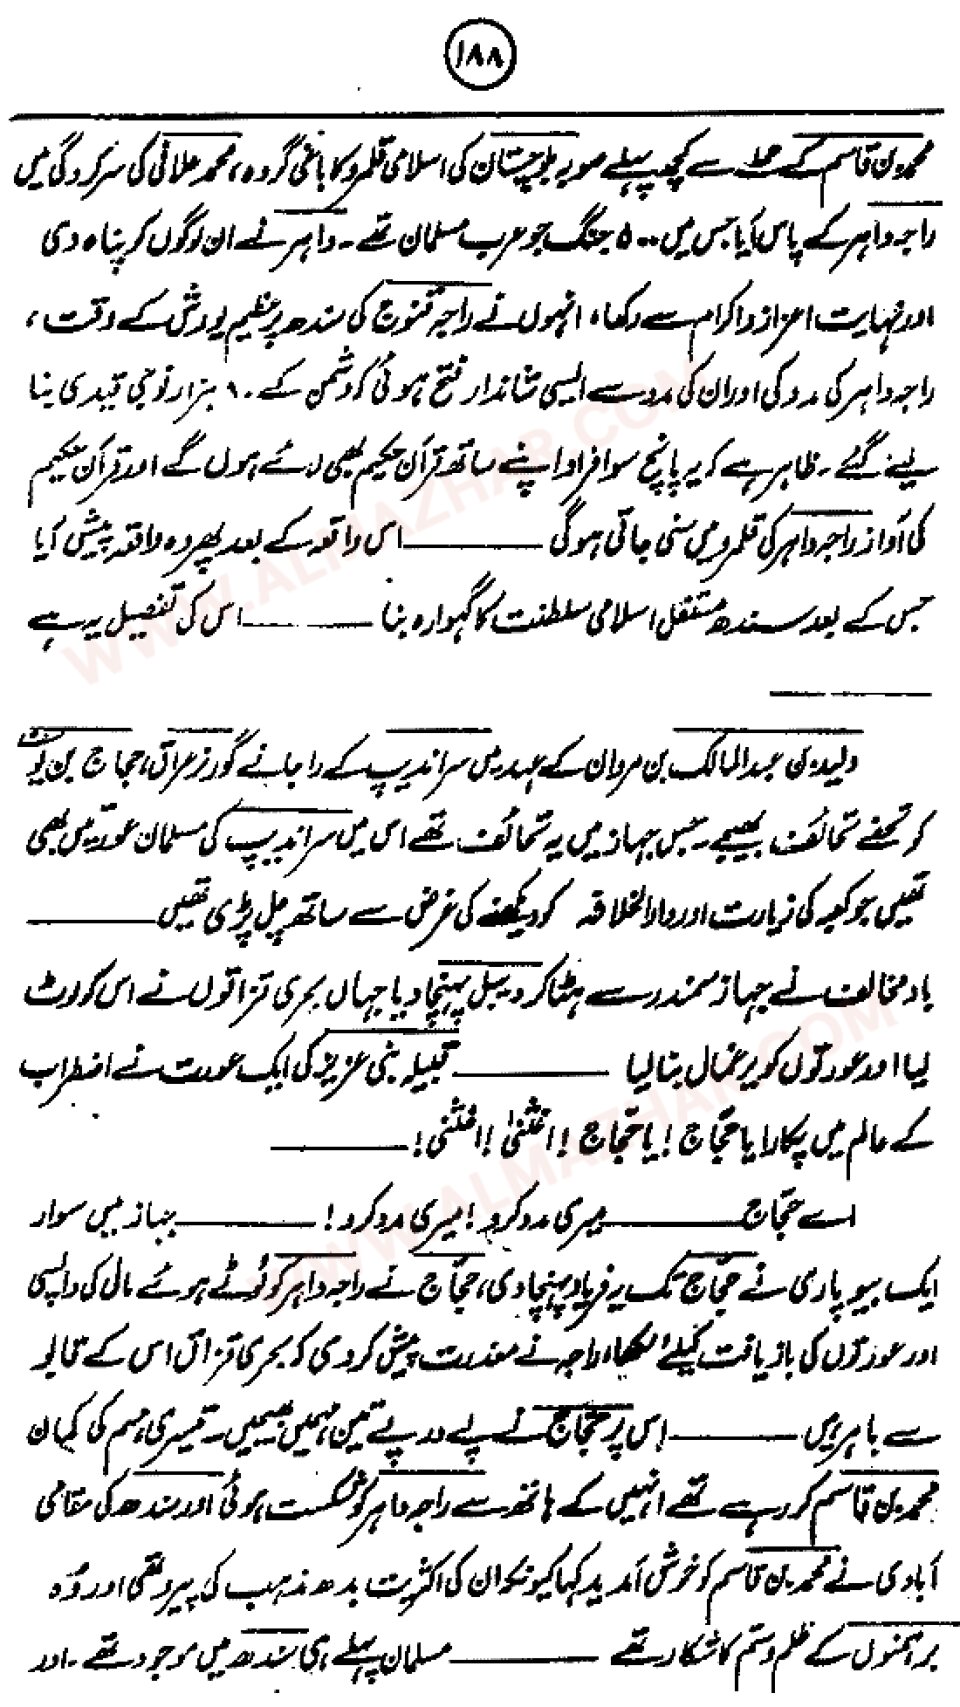 ۱۸۸
محمد بن قاسم کے حملہ سے کچھ پہلے صوبہ بلوچستان کی اسلامی قلمرو کا باغی گروہ، محمد علافی کی سرکردگی میں
راجہ داہر کے پاس آیا جس میں ۵۰۰ جنگ جو عرب مسلمان تھے۔ داہر نے ان لوگوں کو پناہ دی
اور نہایت اعزاز و اکرام سے رکھا، انہوں نے راجہ قنوج کی سندھ پر عظیم یورش کے وقت،
راجہ داہر کی مدد کی اور ان کی مدد سے ایسی شاندار فتح ہوئی کہ دشمن کے ۸۰ ہزار فوجی قیدی بنا
لیئے گئے۔ ظاہر ہے کہ یہ پانچ سو افراد اپنے ساتھ قرآن حکیم بھی لائے ہوں گے اور قرآن حکیم
کی آواز راجہ داہر کی قلمرو میں سنی جاتی ہوگی ــــــــ اس واقعہ کے بعد پھر وہ واقعہ پیش آیا
جس کے بعد سندھ مستقل اسلامی سلطنت کا گہوارہ بنا ــــــــ اس کی تفصیل یہ ہے
ــــــــ
ولید بن عبد المالک بن مروان کے عہد میں سراندیپ کے راجا نے گورنر عراق، حجاج بن یوسف
کو تحفے تحائف بھیجے۔ جس جہاز میں یہ تحائف تھے اس میں سراندیپ کی مسلمان عورتیں بھی
تھیں جو کعبہ کی زیارت اور دار الخلافہ کو دیکھنے کی غرض سے ساتھ چل پڑی تھیں ــــــــ
باد مخالف نے جہاز سمندر سے ہٹا کر دیبل پہنچا دیا جہاں بحری قزاقوں نے اس کو لوٹ
لیا اور عورتوں کو یرغمال بنا لیا ــــــــ قبیلہ بنی عزیز کی ایک عورت نے اضطراب
کے عالم میں پکارا یا حجّاج! یا حجّاج!! اغثنی!! اغثنی! ــــــــ
اے حجّاج ــــــــ میری مدد کرو! میری مدد کرو! ــــــــ جہاز میں سوار
ایک بیوپاری نے حجّاج تک یہ فریاد پہنچا دی، حجّاج نے راجہ داہر کو لُوٹے ہوئے مال کی واپسی
اور عورتوں کی بازیافت کیلئے لکھا، راجہ نے معذرت پیش کر دی کہ بحری قزاق اس کے قابو
سے باہر ہیں ــــــــ اس پر حجّاج نے پے در پے تین مہمیں بھیجیں۔ تیسری مہم کی کمان
محمد بن قاسم کر رہے تھے انہیں کے ہاتھ سے راجہ داہر کو شکست ہوئی اور سندھ کی مقامی
آبادی نے محمد بن قاسم کو خوش آمدید کہا کیونکہ ان کی اکثریت بدھ مذہب کی پیرو تھی اور وہ
برہمنوں کے ظلم و ستم کا شکار تھے ــــــــ مسلمان پہلے ہی سندھ میں موجود تھے۔ اور
WWW.ALMAZHAR.COM
WWW.ALMAZHAR.COM